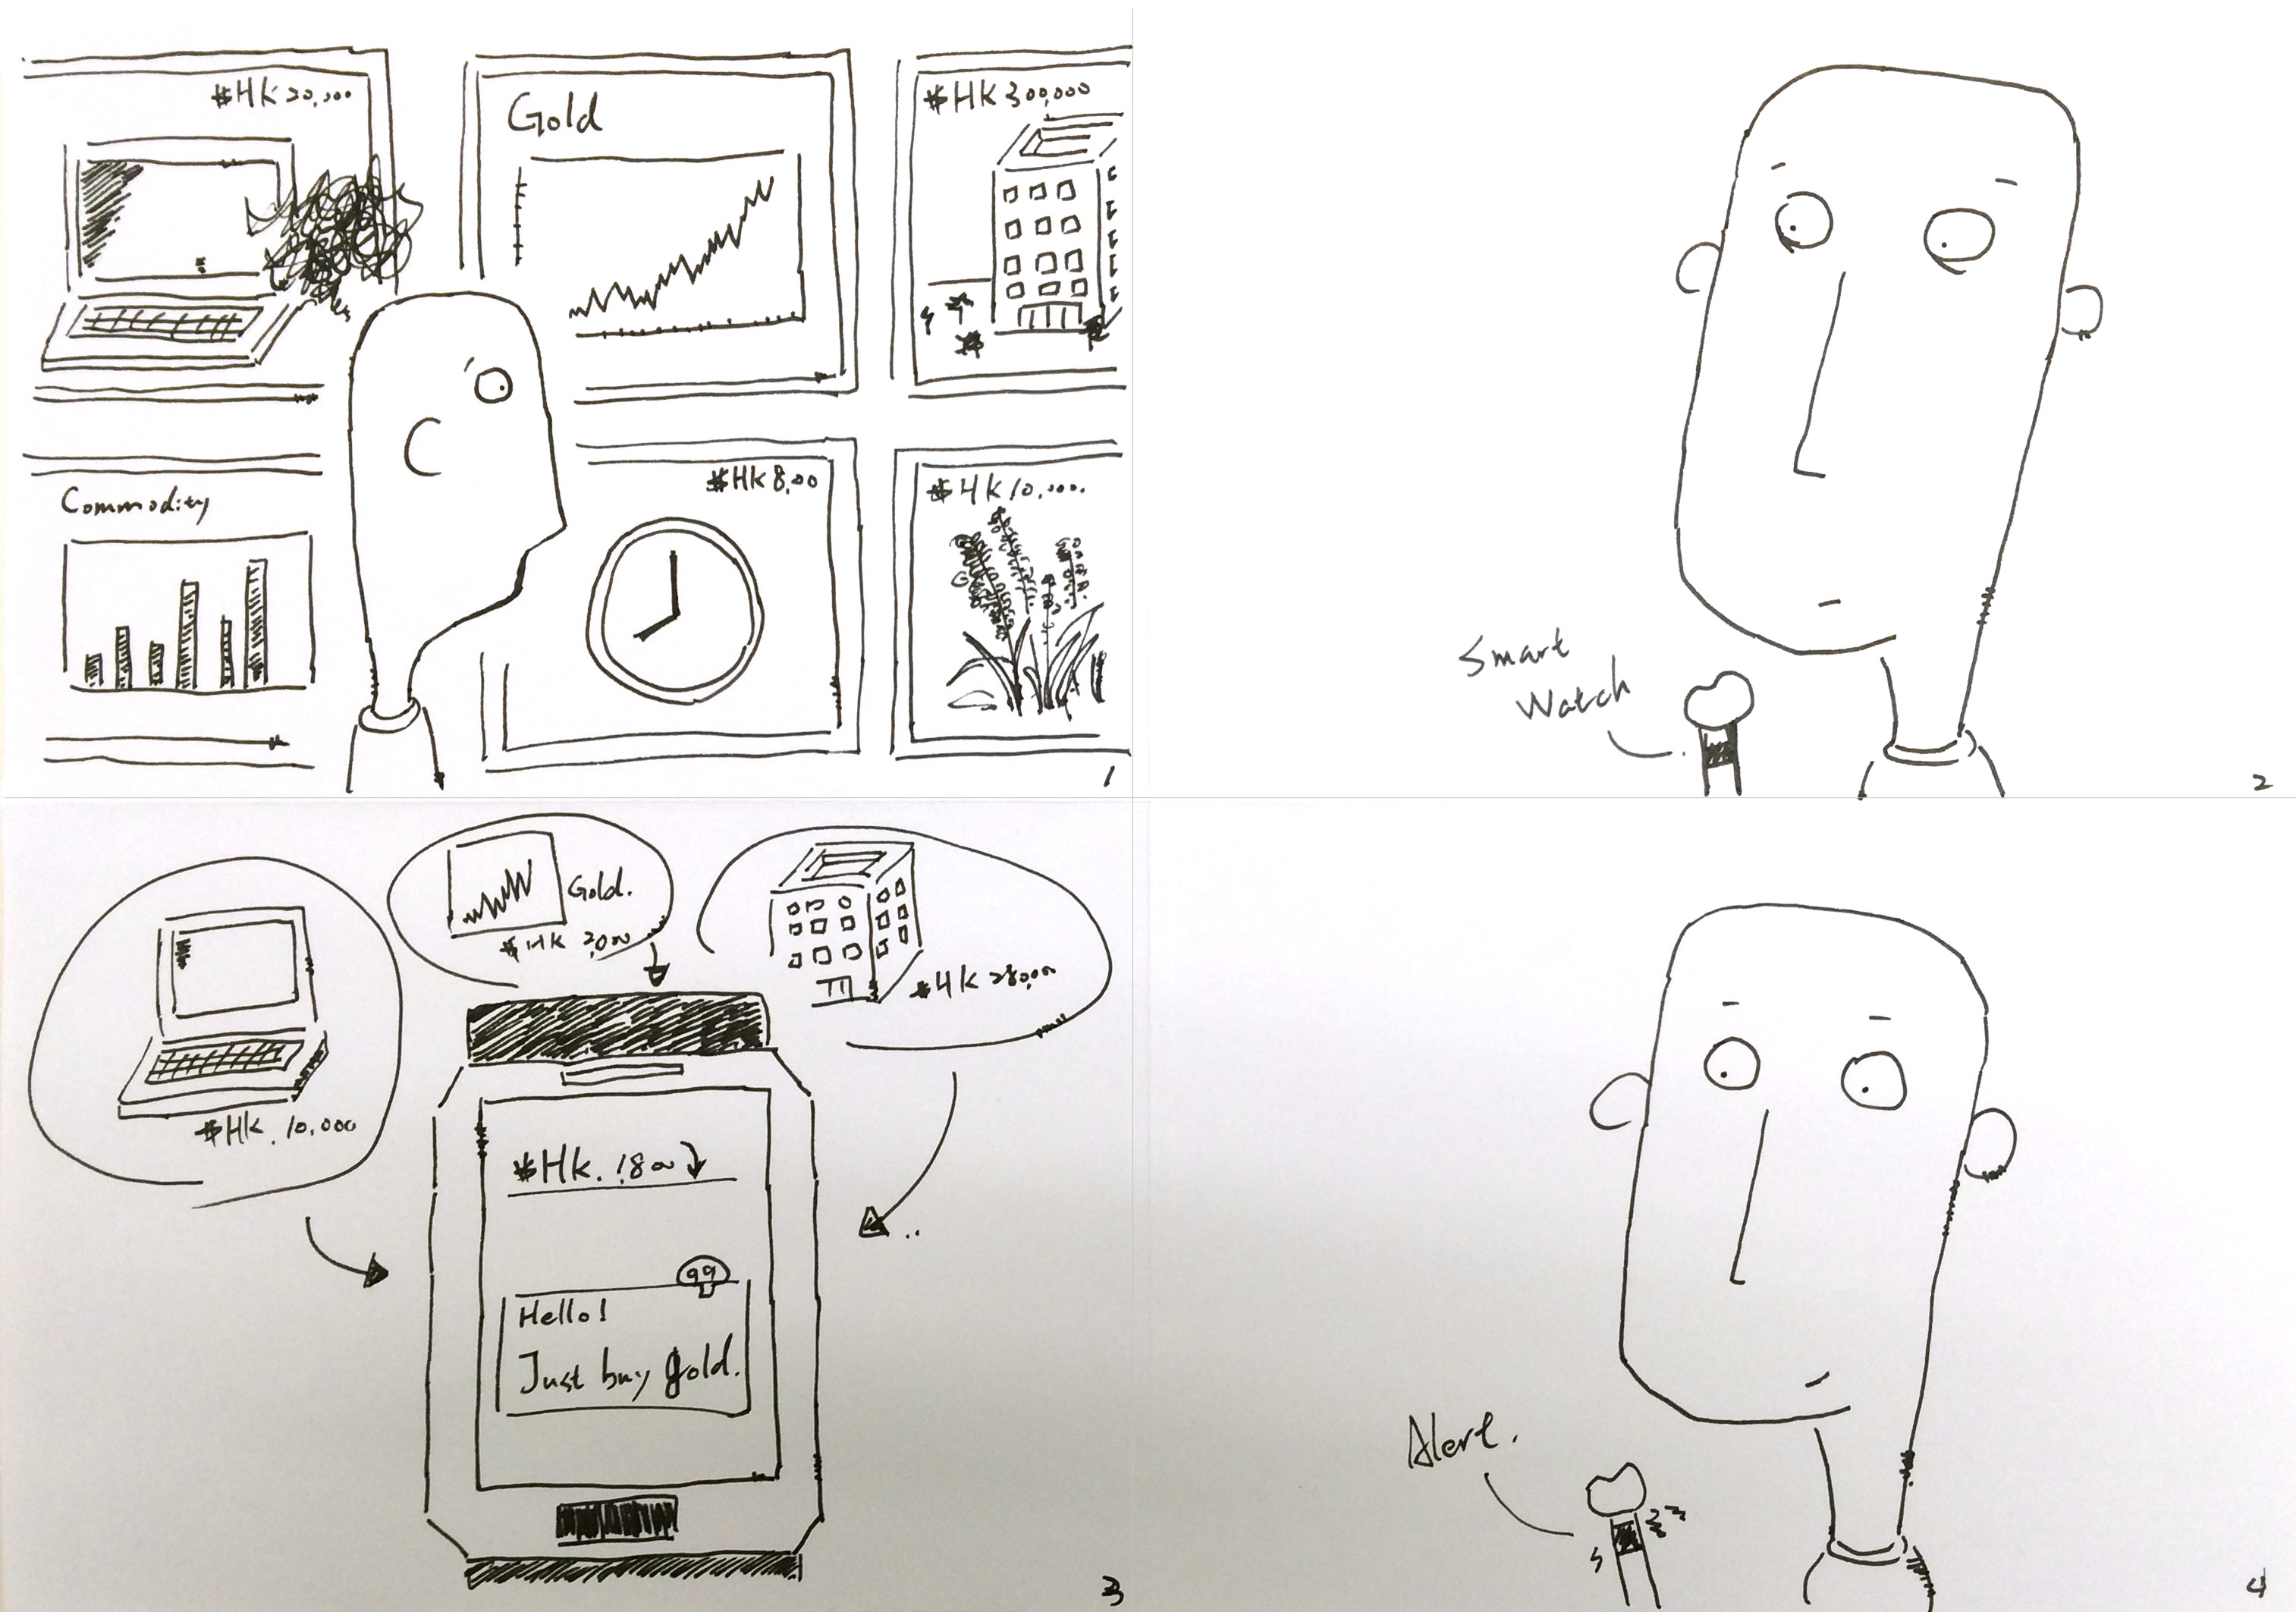 $HK 20,000
Gold
$HK 300,000
Commodity
$HK 8,00
$HK 10,000.
1
Smart
Watch
2
Gold.
$HK
$HK 280,00
$HK. 10,000
$HK. 1800
99
Hello!
Just buy gold.
3
Alert.
4